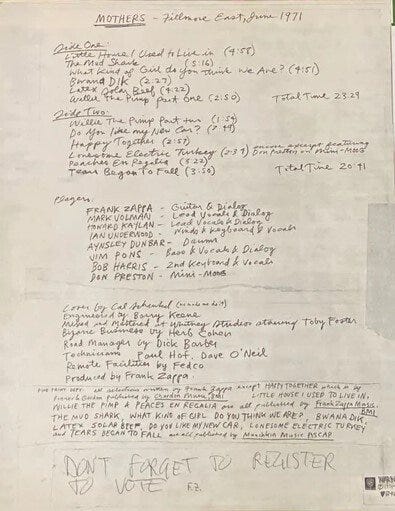 MOTHERS - Fillmore East, June 1971
Side One
Little House I Used to Live in (4:58)
The Mud Shark (5:16)
What Kind of Girl do you think we Are? (4:51)
Bwana Dik (2:27)
Latex Solar Beef (4:22)
Willie The Pimp Part One (2:50) Total Time 23:29
Side Two:
Willie The Pimp Part two (1:54)
Do You like my New Car? (7:49)
Happy Together (2:57)
Lonesome Electric Turkey (2:34) encore excerpt featuring Don Preston on Mini-Moog
Peaches En Regalia (3:22)
Tears Began To Fall (3:50) Total Time 20:41
Players:
FRANK ZAPPA - Guitar & Dialog
MARK VOLMAN - Lead Vocals & Dialog
HOWARD KAYLAN - Lead Vocals & Dialog
IAN UNDERWOOD - Winds & Keyboard & Vocals
AYNSLEY DUNBAR - Drums
JIM PONS - Bass & Vocals & Dialog
BOB HARRIS - 2nd Keyboard & Vocals
DON PRESTON - Mini-MOOG
Cover by Cal Schenkel
Engineered by Barry Keene
Mixed and Mastered at Whitney Studios starring Toby Foster
Bizarre Business by Herb Cohen
Road Manager by Dick Barber
Technicians Paul Hof, Dave O'Neil
Remote Facilities by Fedco
Produced by Frank Zappa
FINE PRINT DEPT. all selections written by Frank Zappa except HAPPY TOGETHER which is by
published by Chardon Music, BMI LITTLE HOUSE I USED TO LIVE IN,
WILLIE THE PIMP & PEACES EN REGALIA are all published by Frank Zappa Music BMI
THE MUD SHARK, WHAT KIND OF GIRL DO YOU THINK WE ARE?, BWANA DIK,
LATEX SOLAR BEEF, DO YOU LIKE MY NEW CAR, LONESOME ELECTRIC TURKEY,
and TEARS BEGAN TO FALL are all published by Munchkin Music ASCAP
DON'T FORGET TO REGISTER
TO VOTE F.Z.